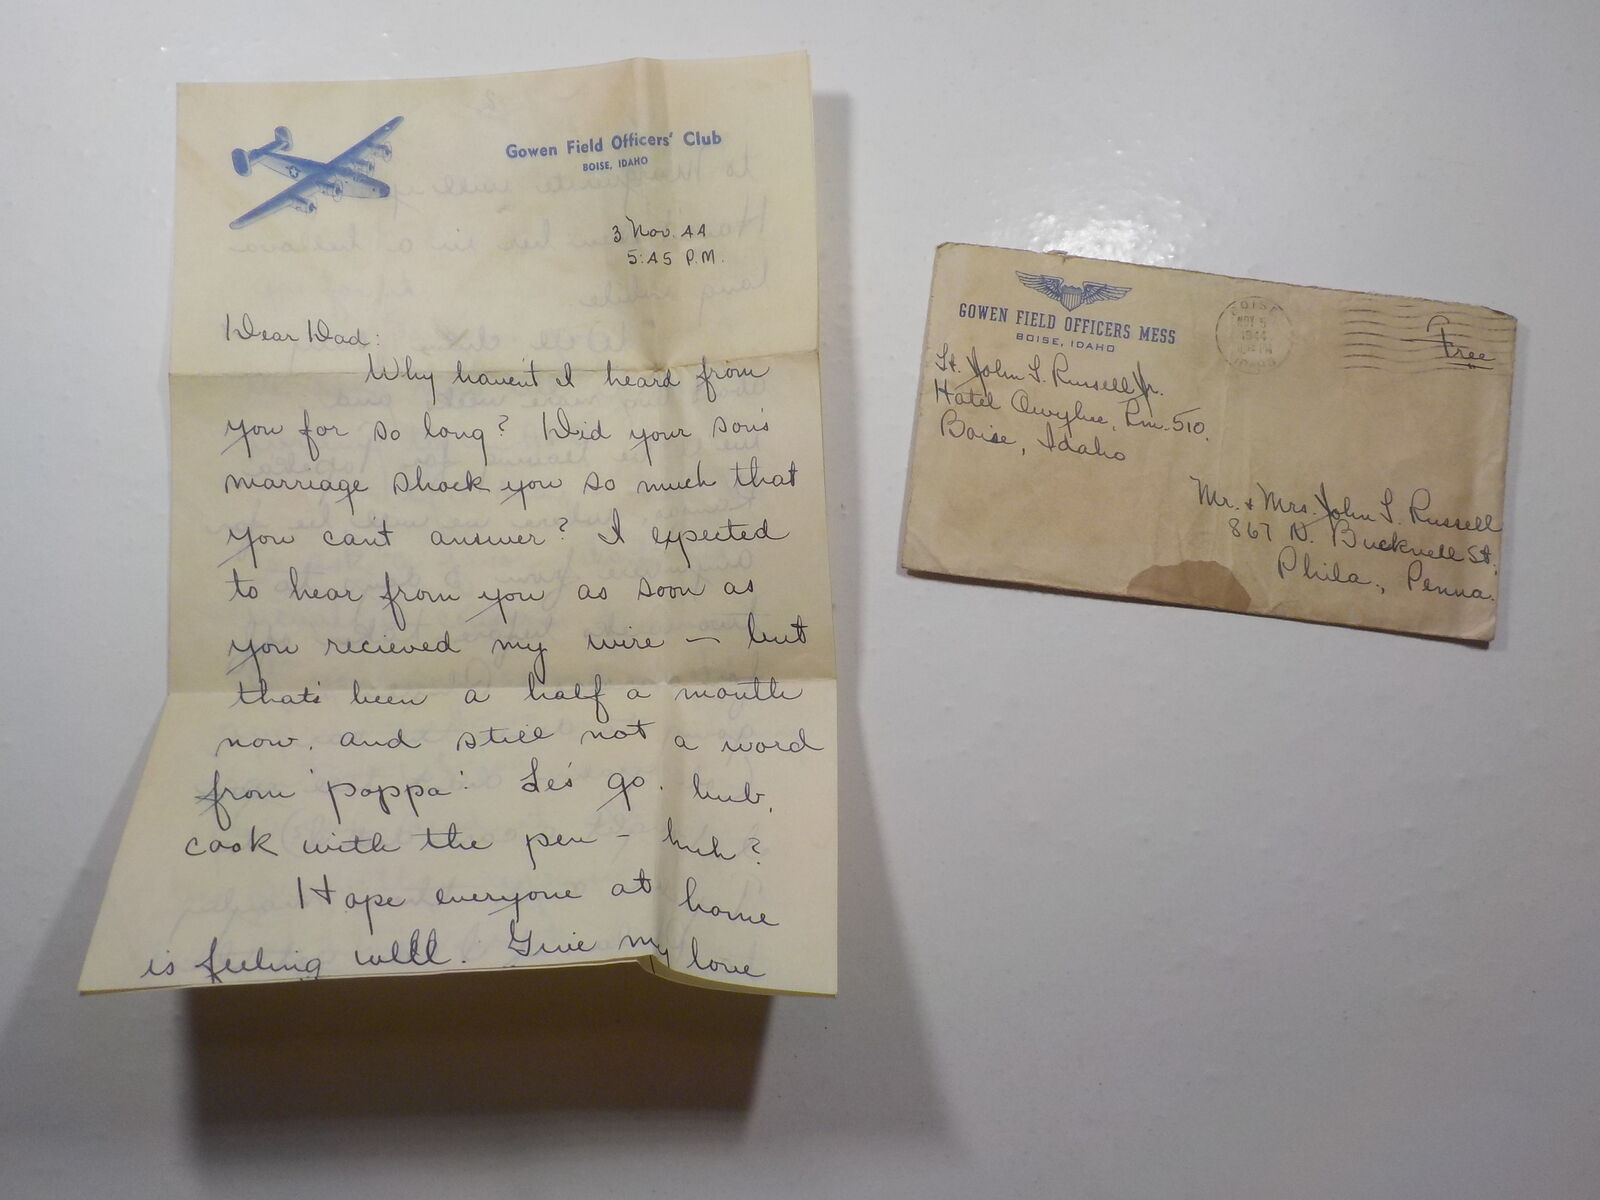 Gowen Field Officers' Club
BOISE, IDAHO
3 Nov. 44
5:45 P.M.
Dear Dad:
Why haven't I heard from
you for so long? Did your son's
marriage shock you so much that
you can't answer? I expected
to hear from you as soon as
you recieved my wire — but
that's been a half a month
now, and still not a word
from 'poppa'. Les' go, bub,
cook with the pen — huh?
Hope everyone at home
is feeling well. Give my love
GOWEN FIELD OFFICERS MESS
BOISE, IDAHO
Lt. John L. Russell Jr.
Hotel Owyhee, Rm. 510.
Boise, Idaho
BOISE
NOV 5
1944
IDAHO
Free
Mr. & Mrs. John L. Russell
867 N. Bucknell St.
Phila., Penna.